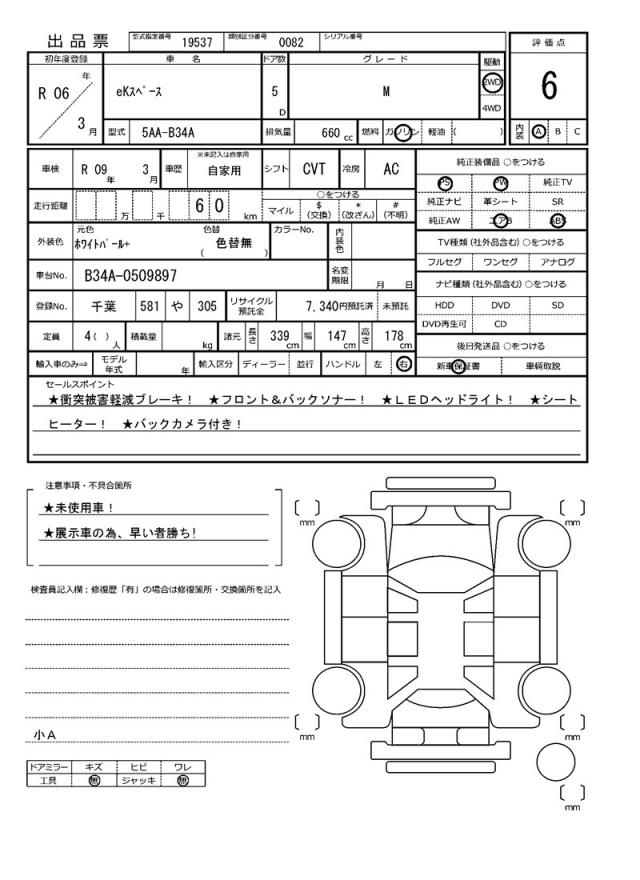 出品票 型式指定番号 19537 類別区分番号 0082 シリアル番号
評価点
初年度登録 車名 ドア数 グレード 駆動
R 06 年 3 月 eKスペース 5 D M 2WD 4WD
6
型式 5AA-B34A 排気量 660 cc 燃料 ガソリン 軽油 ( )
内装 A B C
車検 R 09 年 3 月 車歴 ※未記入は自家用 自家用 シフト CVT 冷房 AC
純正装備品 ○をつける
PS PW 純正TV
走行距離 万 千 6 0 km ○をつける
マイル $ (交換) * (改ざん) # (不明)
純正ナビ 革シート SR
純正AW エアB ABS
外装色 元色 ホワイトパール+ 色替 ( 色替無 ) カラーNo. 内装色
TV種類 (社外品含む) ○をつける
フルセグ ワンセグ アナログ
車台No. B34A-0509897 名変期限 月 日
ナビ種類 (社外品含む) ○をつける
登録No. 千葉 581 や 305 リサイクル預託金 7,340円預託済 未預託
HDD DVD SD
DVD再生可 CD
定員 4( ) 人 積載量 kg 諸元 長さ 339 cm 幅 147 cm 高さ 178 cm
後日発送品 ○をつける
輸入車のみ⇒ モデル年式 年 輸入区分 ディーラー 並行 ハンドル 左 右
新車保証書 車輌取説
セールスポイント
★衝突被害軽減ブレーキ！ ★フロント＆バックソナー！ ★ＬＥＤヘッドライト！ ★シート
ヒーター！ ★バックカメラ付き！
注意事項・不具合箇所
★未使用車！
★展示車の為、早い者勝ち!
検査員記入欄：修復歴「有」の場合は修復箇所・交換箇所を記入
小A
ドアミラー キズ ヒビ ワレ
工具 無 ジャッキ 無
〔 〕 mm
〔 〕 mm
〔 〕 mm
〔 〕 mm
〔 〕 mm